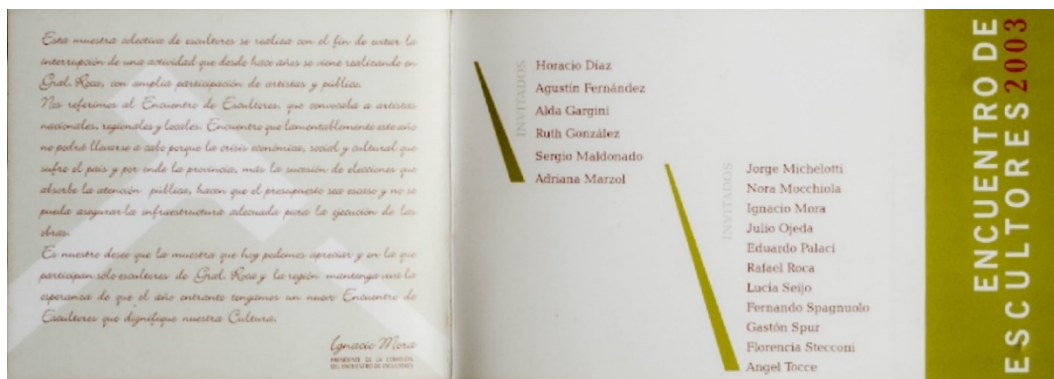 Esta muestra colectiva de escultores se realiza con el fin de evitar la
interrupción de una actividad que desde hace años se viene realizando en
Gral. Roca, con amplia participación de artistas y público.
Nos referimos al Encuentro de Escultores, que convocaba a artistas
nacionales, regionales y locales. Encuentro que lamentablemente este año
no podrá llevarse a cabo porque la crisis económica, social y cultural que
sufre el país y por ende la provincia, más la sucesión de elecciones que
absorbe la atención pública, hacen que el presupuesto sea escaso y no se
pueda asegurar la infraestructura adecuada para la ejecución de las
obras.
Es nuestro deseo que la muestra que hoy podemos apreciar y en la que
participan sólo escultores de Gral. Roca y la región mantenga viva la
esperanza de que el año entrante tengamos un nuevo Encuentro de
Escultores que dignifique nuestra Cultura.
Ignacio Mora
PRESIDENTE DE LA COMISIÓN
DEL ENCUENTRO DE ESCULTORES
INVITADOS
Horacio Díaz
Agustín Fernández
Alda Gargini
Ruth González
Sergio Maldonado
Adriana Marzol
INVITADOS
Jorge Michelotti
Nora Mocchiola
Ignacio Mora
Julio Ojeda
Eduardo Palaci
Rafael Roca
Lucía Seijo
Fernando Spagnuolo
Gastón Spur
Florencia Stecconi
Angel Tocce
ENCUENTRO DE
ESCULTORES 2003